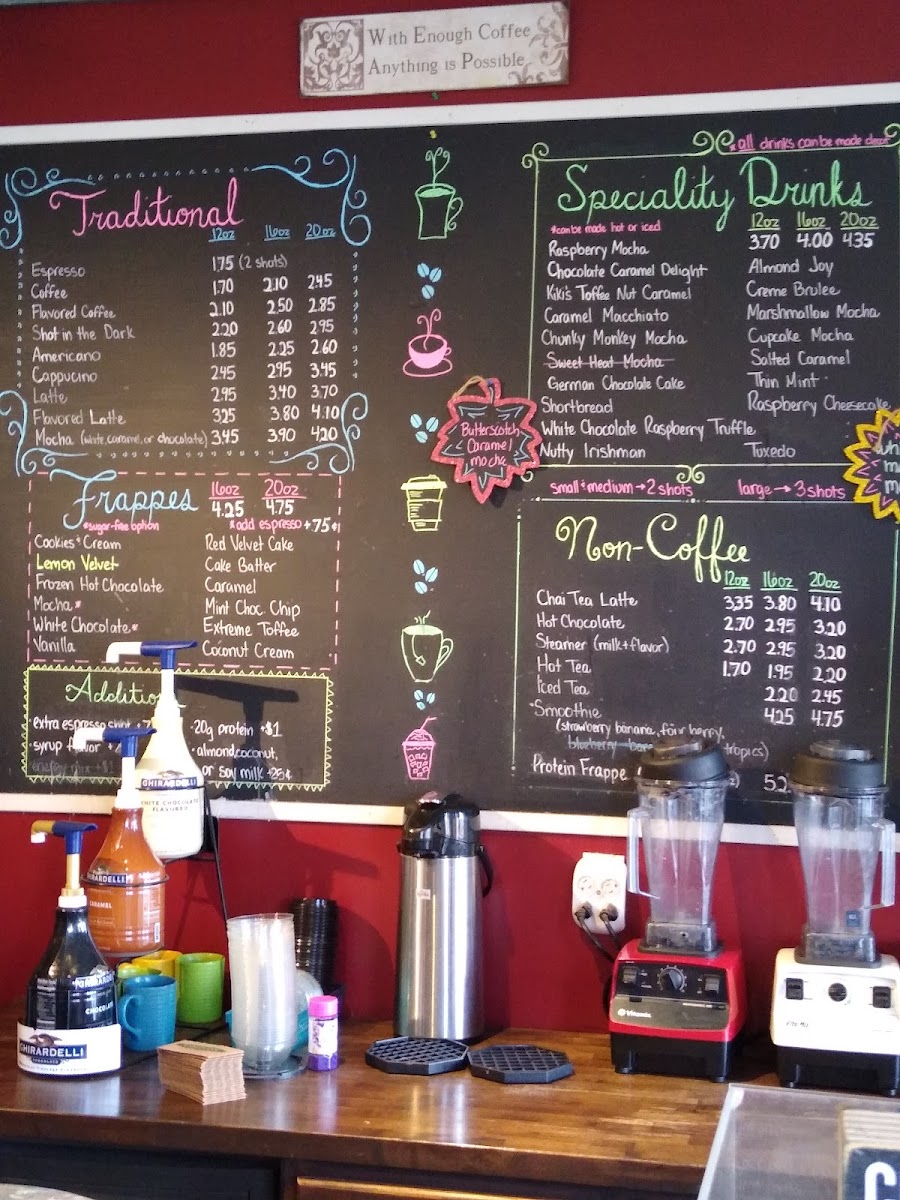 With Enough Coffee
Anything is Possible
Traditional
12oz 16oz 20oz
Espresso 1.75 (2 shots)
Coffee 1.70 2.10 2.45
Flavored Coffee 2.10 2.50 2.85
Shot in the Dark 2.20 2.60 2.95
Americano 1.85 2.25 2.60
Cappucino 2.45 2.95 3.45
Latte 2.95 3.40 3.70
Flavored Latte 3.25 3.80 4.10
Mocha (white, caramel, or chocolate) 3.45 3.90 4.20
Frappes 16oz 20oz
4.25 4.75
*sugar-free option *add espresso +75¢
Cookies & Cream Red Velvet Cake
Lemon Velvet Cake Batter
Frozen Hot Chocolate Caramel
Mocha* Mint Choc Chip
White Chocolate* Extreme Toffee
Vanilla Coconut Cream
Addition
• extra espresso shot • 20g protein +$1
• syrup flavor • almond, coconut,
or soy milk +25¢
Butterscotch
Caramel
mocha
*all drinks can be made decaf
Speciality Drinks
*can be made hot or iced
12oz 16oz 20oz
3.70 4.00 4.35
Raspberry Mocha
Chocolate Caramel Delight Almond Joy
Kiki's Toffee Nut Caramel Creme Brulee
Caramel Macchiato Marshmallow Mocha
Chunky Monkey Mocha Cupcake Mocha
Sweet Heat Mocha Salted Caramel
German Chocolate Cake Thin Mint
Shortbread Raspberry Cheesecake
White Chocolate Raspberry Truffle
Nutty Irishman Tuxedo
small & medium → 2 shots large → 3 shots
Non-Coffee
12oz 16oz 20oz
Chai Tea Latte 3.35 3.80 4.10
Hot Chocolate 2.70 2.95 3.20
Steamer (milk + flavor) 2.70 2.95 3.20
Hot Tea 1.70 1.95 2.20
Iced Tea 2.20 2.45
*Smoothie 4.25 4.75
(strawberry banana, four berry,
blueberry tropics)
Protein Frappe 5.2
GHIRARDELLI
WHITE CHOCOLATE
FLAVORED
GHIRARDELLI
CARAMEL
GHIRARDELLI
CHOCOLATE
GHIRARDELLI
CHOCOLATE
Vitamix
C